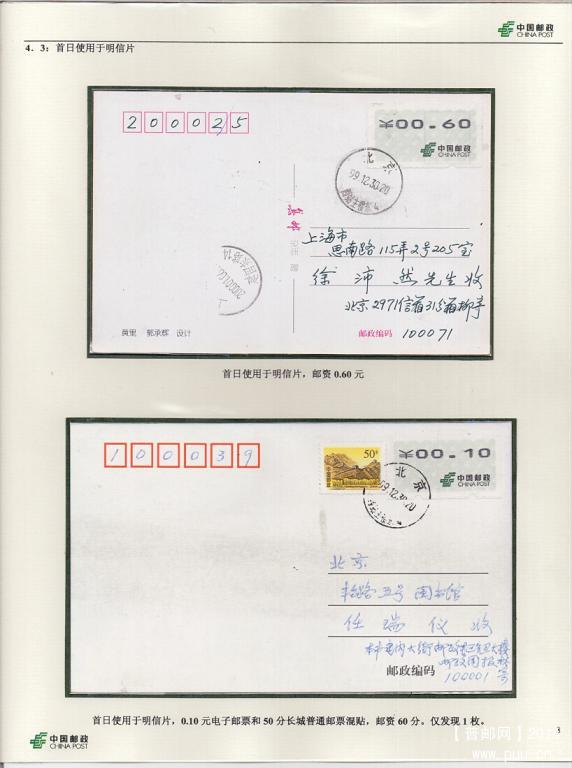 中国邮政
CHINA POST
4．3：首日使用于明信片
200025
¥00.60
中国邮政
CHINA POST
北京
99.12.30.20
上海市
思南路115弄2号205室
徐沛然先生收
北京2971信箱315箱柳亭
黄里 郭承辉 设计
邮政编码 100071
首日使用于明信片，邮资0.60元
100039
50分
¥00.10
中国邮政
CHINA POST
北京
99.12.30.20
北京
五号图书馆
任瑞仪收
邮政编码
100001
首日使用于明信片，0.10元电子邮票和50分长城普通邮票混贴，邮资60分。仅发现1枚。
3
中国邮政
CHINA POST